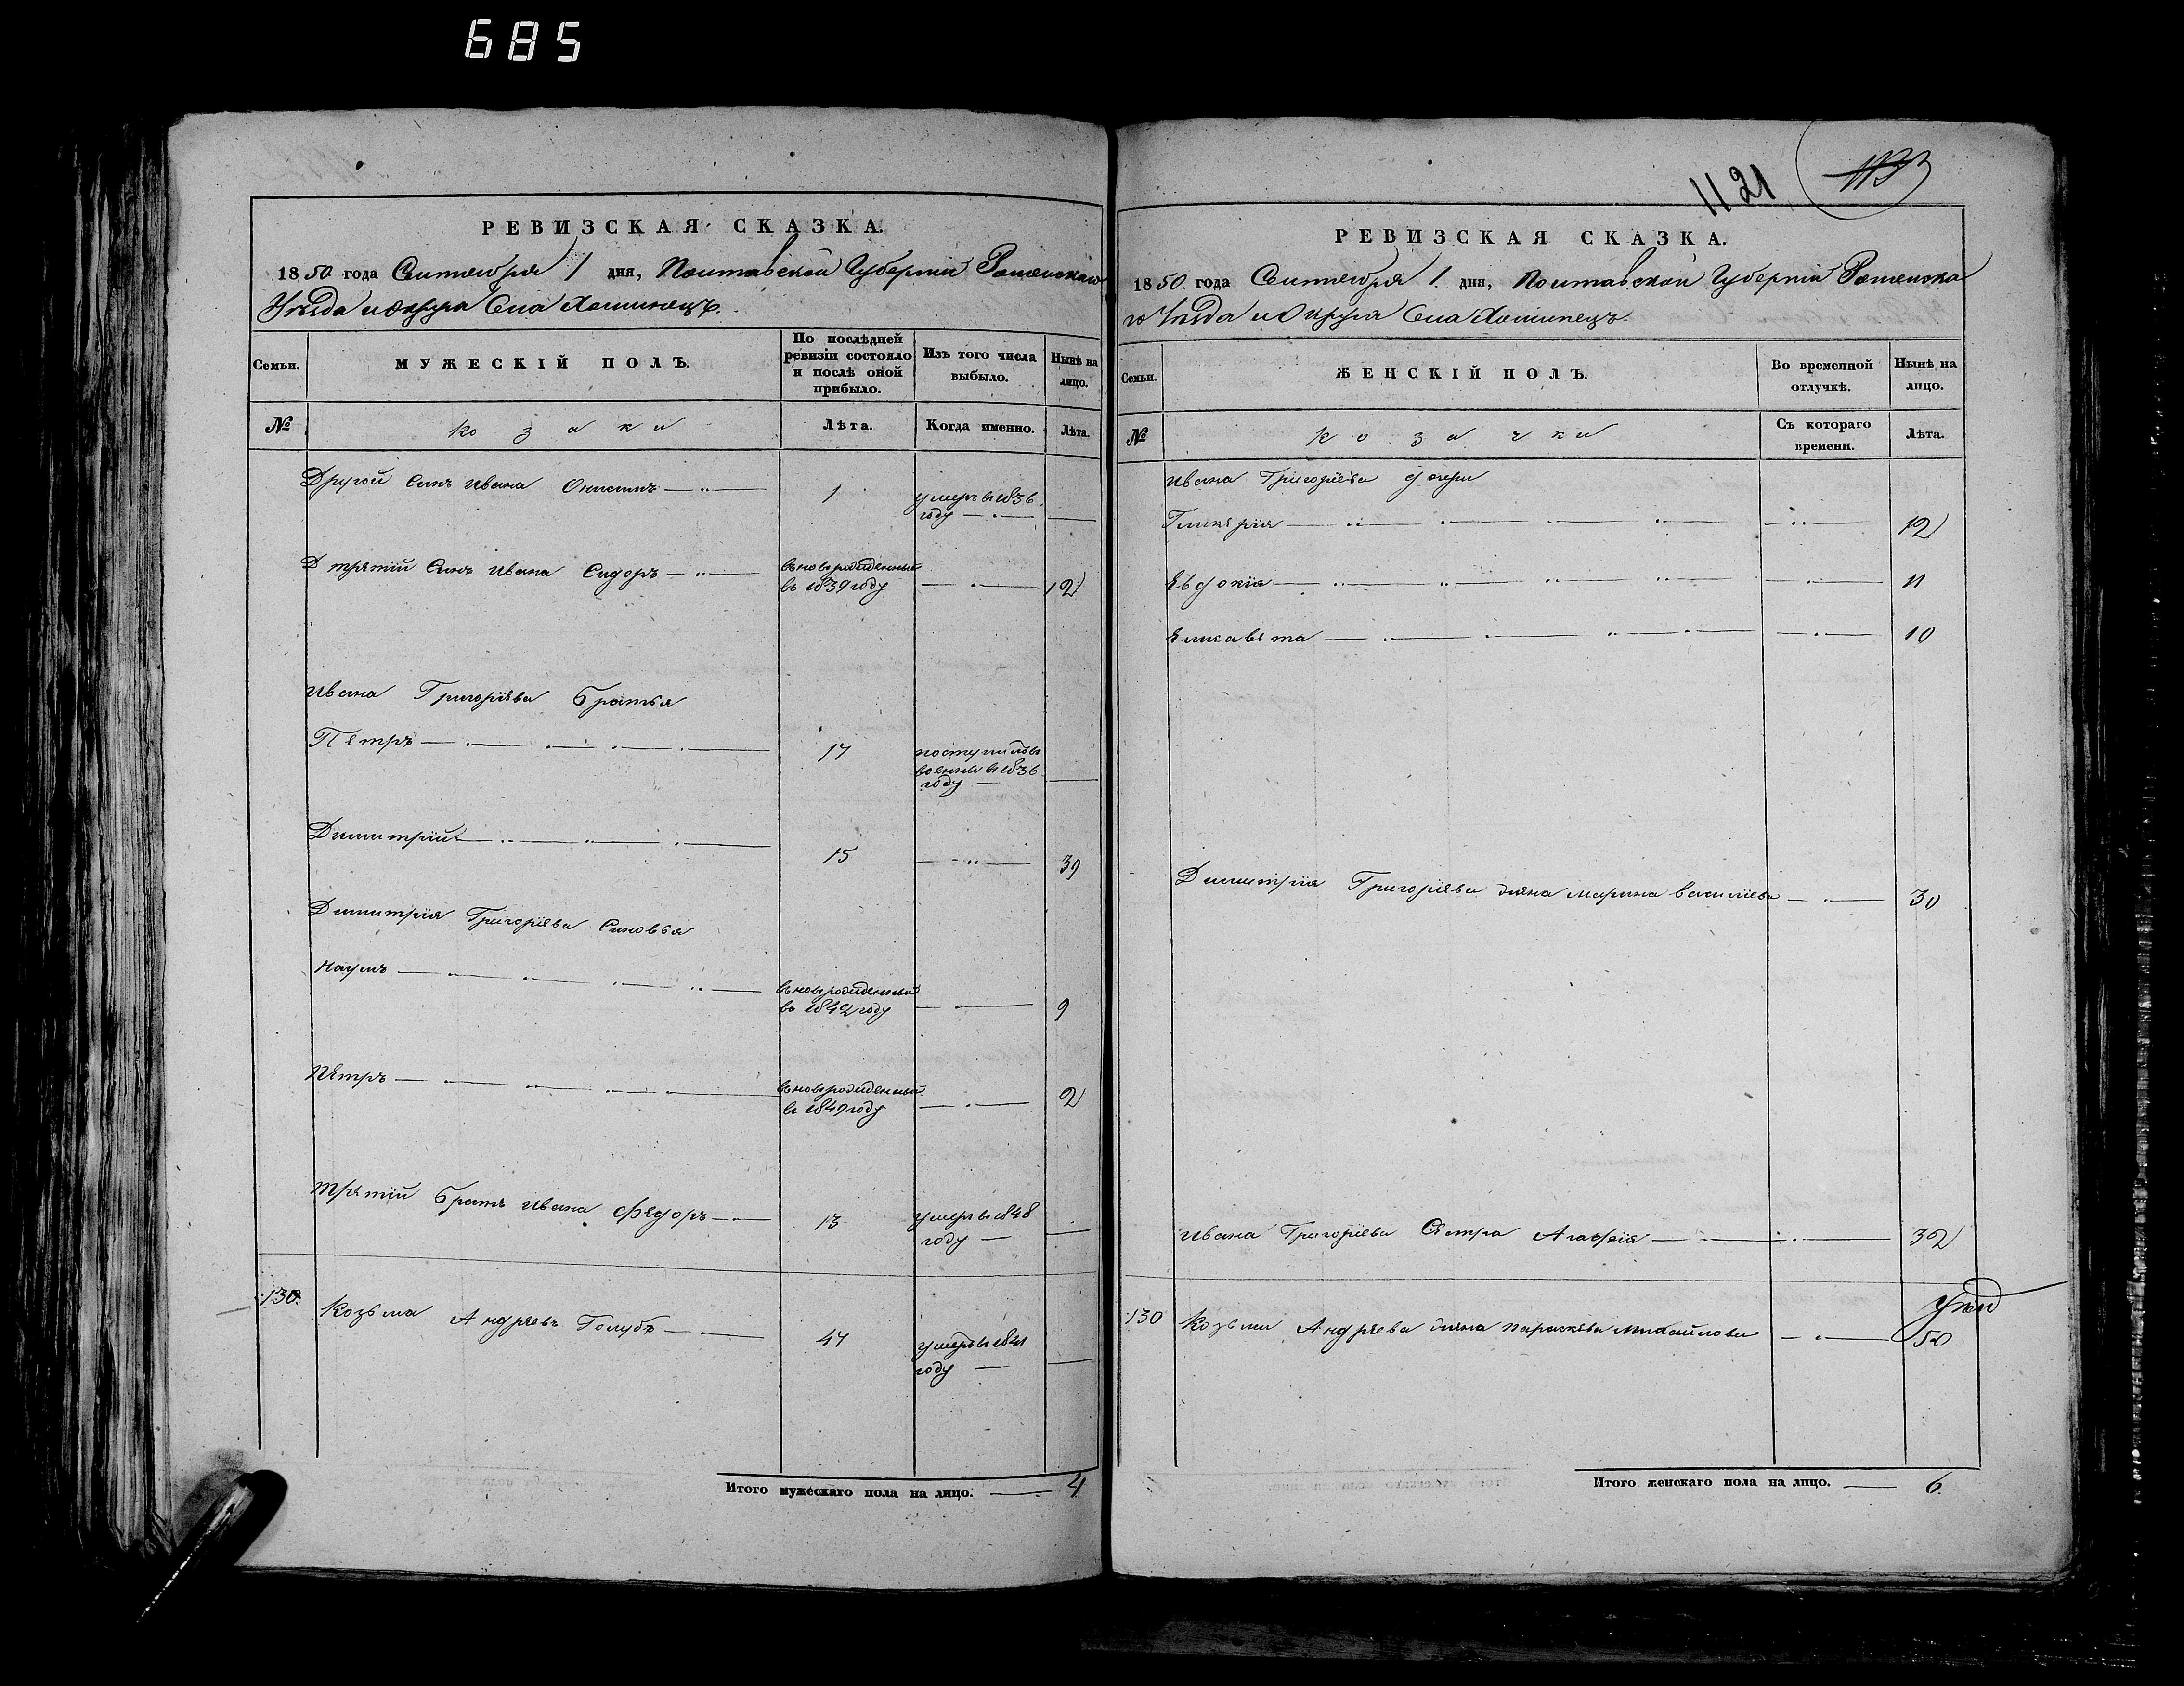 685
РЕВИЗСКАЯ СКАЗКА.
1850 года Сентября 1 дня, Полтавской Губерніи Роменскаго
Уѣзда и округа Села Хоминецъ.
Семьи.
МУЖЕСКІЙ ПОЛЪ.
По послѣдней ревизіи состояло и послѣ оной прибыло.
Изъ того числа выбыло.
Нынѣ на лицо.
№
козаки
Лѣта.
Когда именно.
Лѣта.
Другой Сынъ Ивана 1 умеръ в 1836 году
третій Сынъ Ивана Сидоръ вновьрожденный въ 1839 году 12
Ивана Григоріева братья
Петръ 17 поступилъ в военны в 1836 году
Димитрій 15 39
Димитрія Григоріева Сыновья
Наумъ вновьрожденный въ 1842 году 9
Петръ вновьрожденный в 1849 году 2
третій братъ Ивана Федоръ 13 умеръ в 1848 году
130. Козьма Андреевъ Голубъ 47 умеръ в 1841 году
Итого мужескаго пола на лицо. 4
1121
РЕВИЗСКАЯ СКАЗКА.
1850 года Сентября 1 дня, Полтавской Губерніи Роменска
го Уѣзда и Округа Села Хоминецъ.
Семьи.
ЖЕНСКІЙ ПОЛЪ.
Во временной отлучкѣ.
Нынѣ на лицо.
№
козачки
Съ котораго времени.
Лѣта.
Ивана Григоріева дочери
Гликерія 12
Евдокія 11
Елисавета 10
Димитрія Григоріева жена Марина Василіева 30
Ивана Григоріева Сестра Агафія 32
130 Козьмы Андреева жена Параскева Михайлова 50
Итого женскаго пола на лицо. 6.